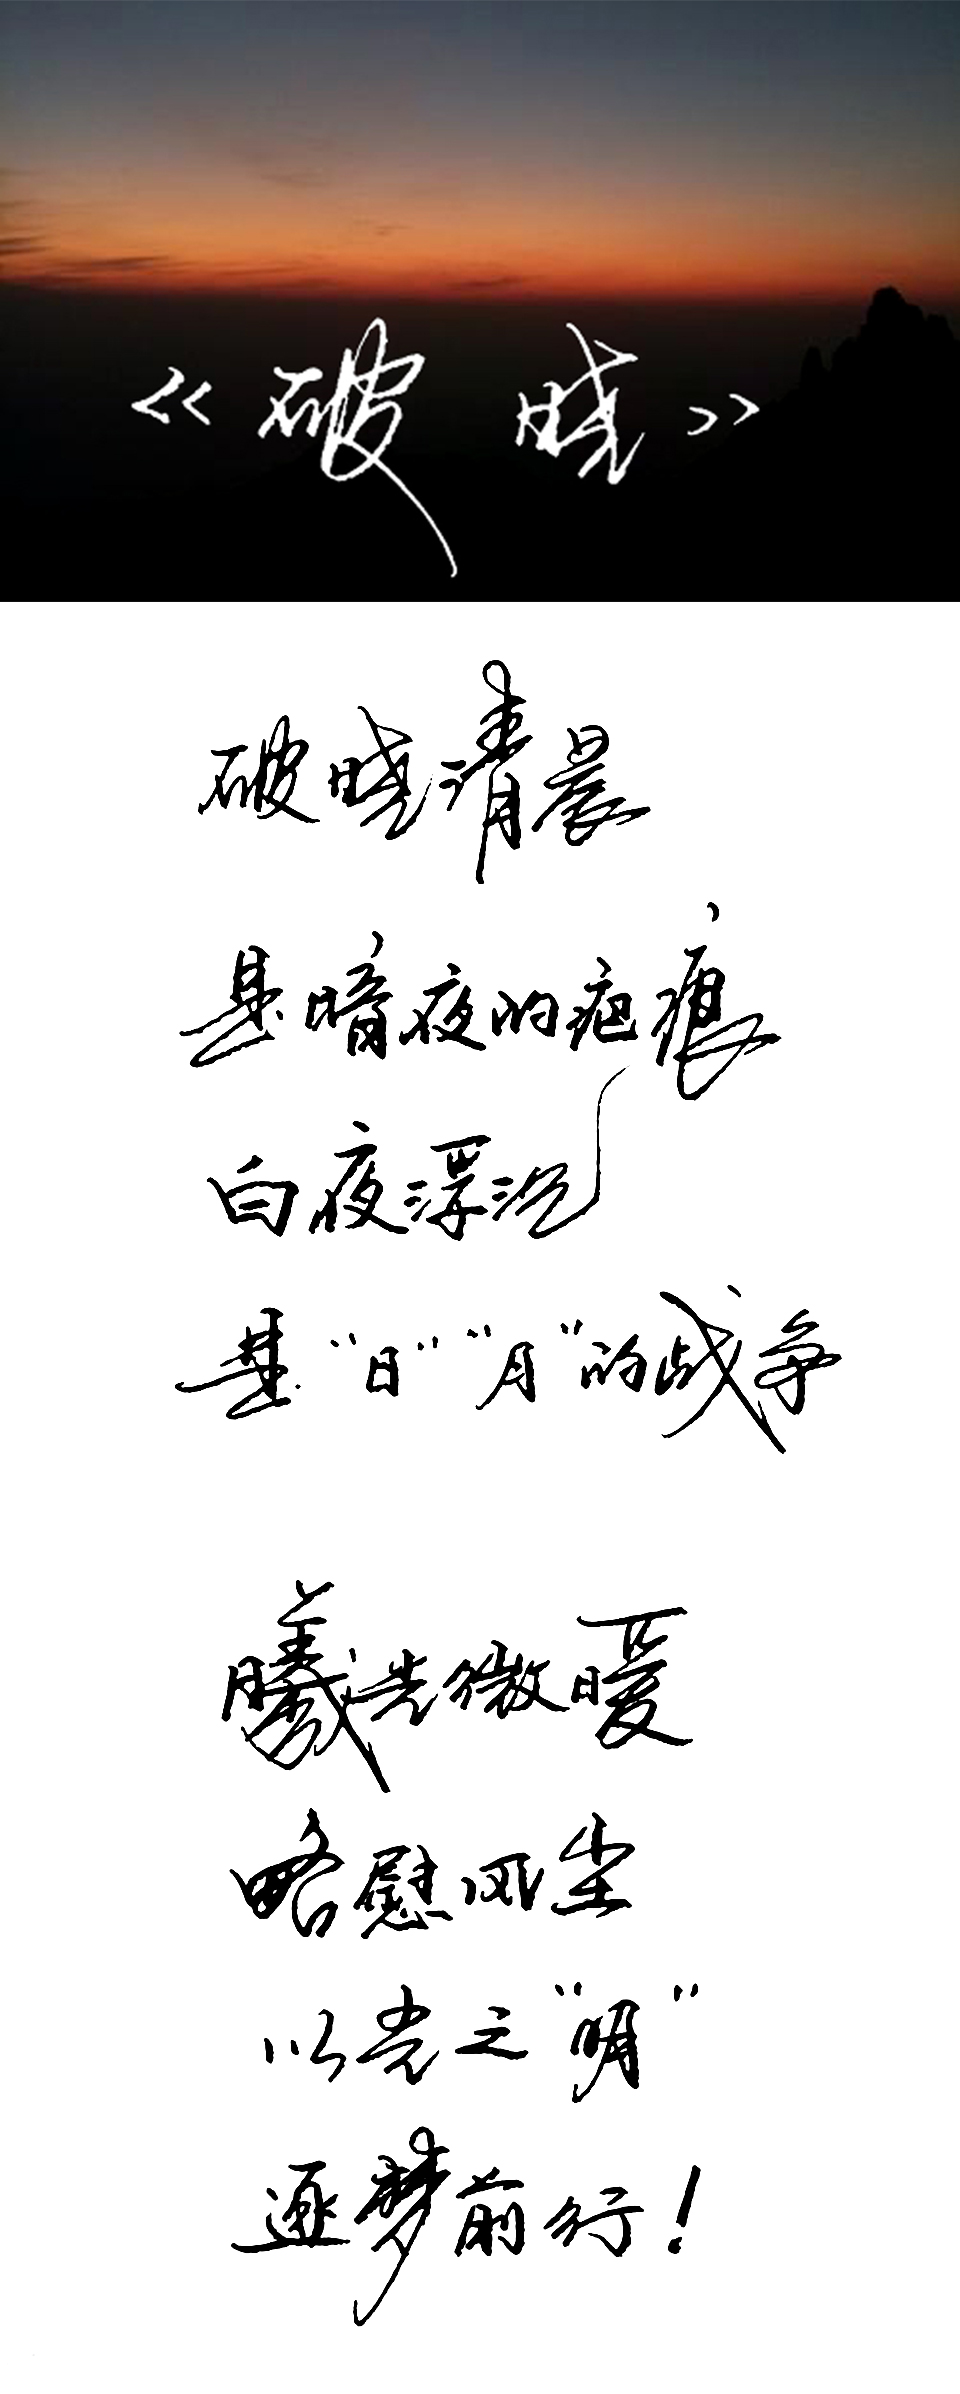 《破晓》
破晓清晨
是暗夜的疤痕
白夜浮沉
是“日”“月”的战争
曦光微暖
略慰风尘
以光之“明”
逐梦前行！